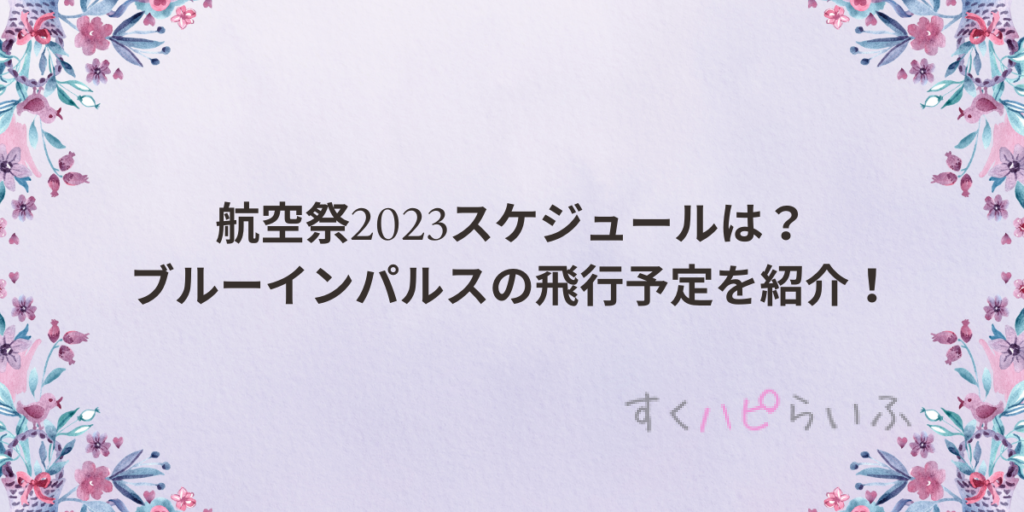 航空祭2023スケジュールは？
ブルーインパルスの飛行予定を紹介！
すくハピらいふ